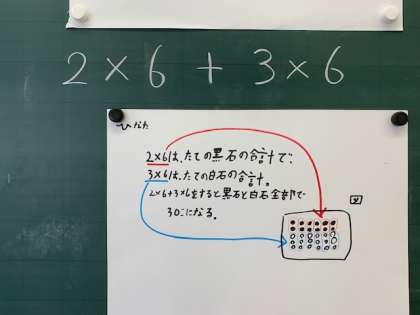 2×6+3×6
ひなた
2×6は、たての黒石の合計で、
3×6は、たての白石の合計。
2×6+3×6をすると黒石と白石全部で
30こになる。